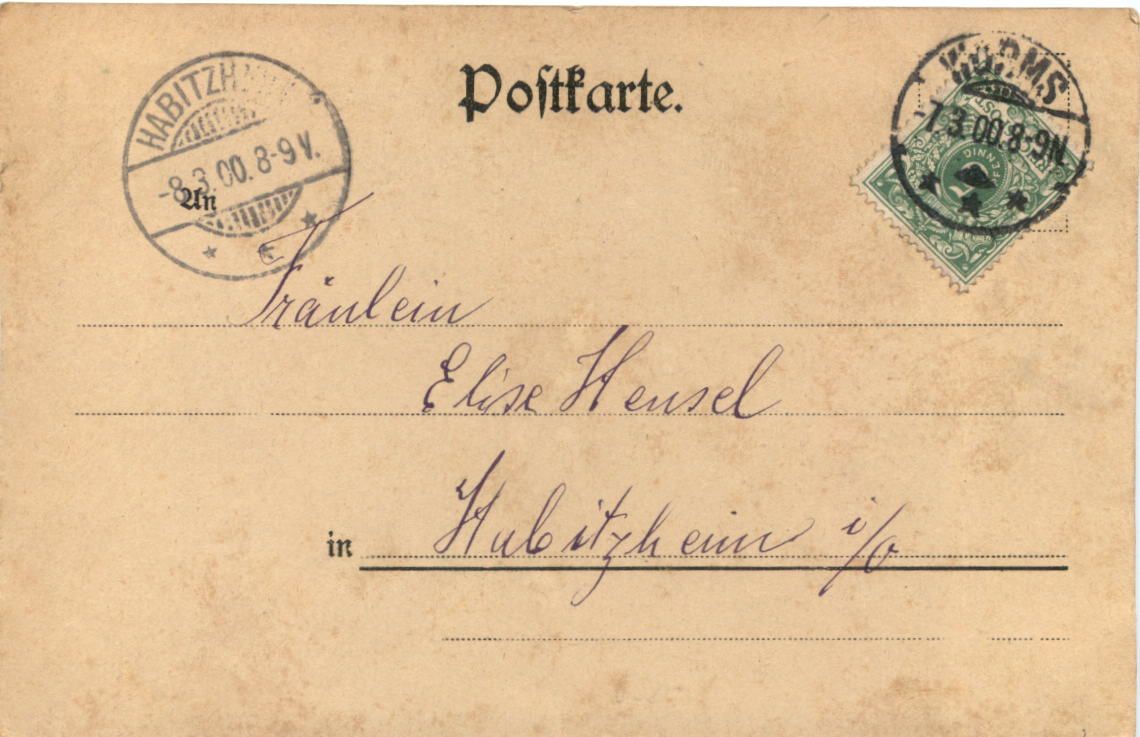 Postkarte.
HABITZH
-8.3.00.8-9V.
WORMS
7.3.00.8-9N.
PFENNIG
5
An
Fräulein
Elise Hensel
in Habitzheim i/O